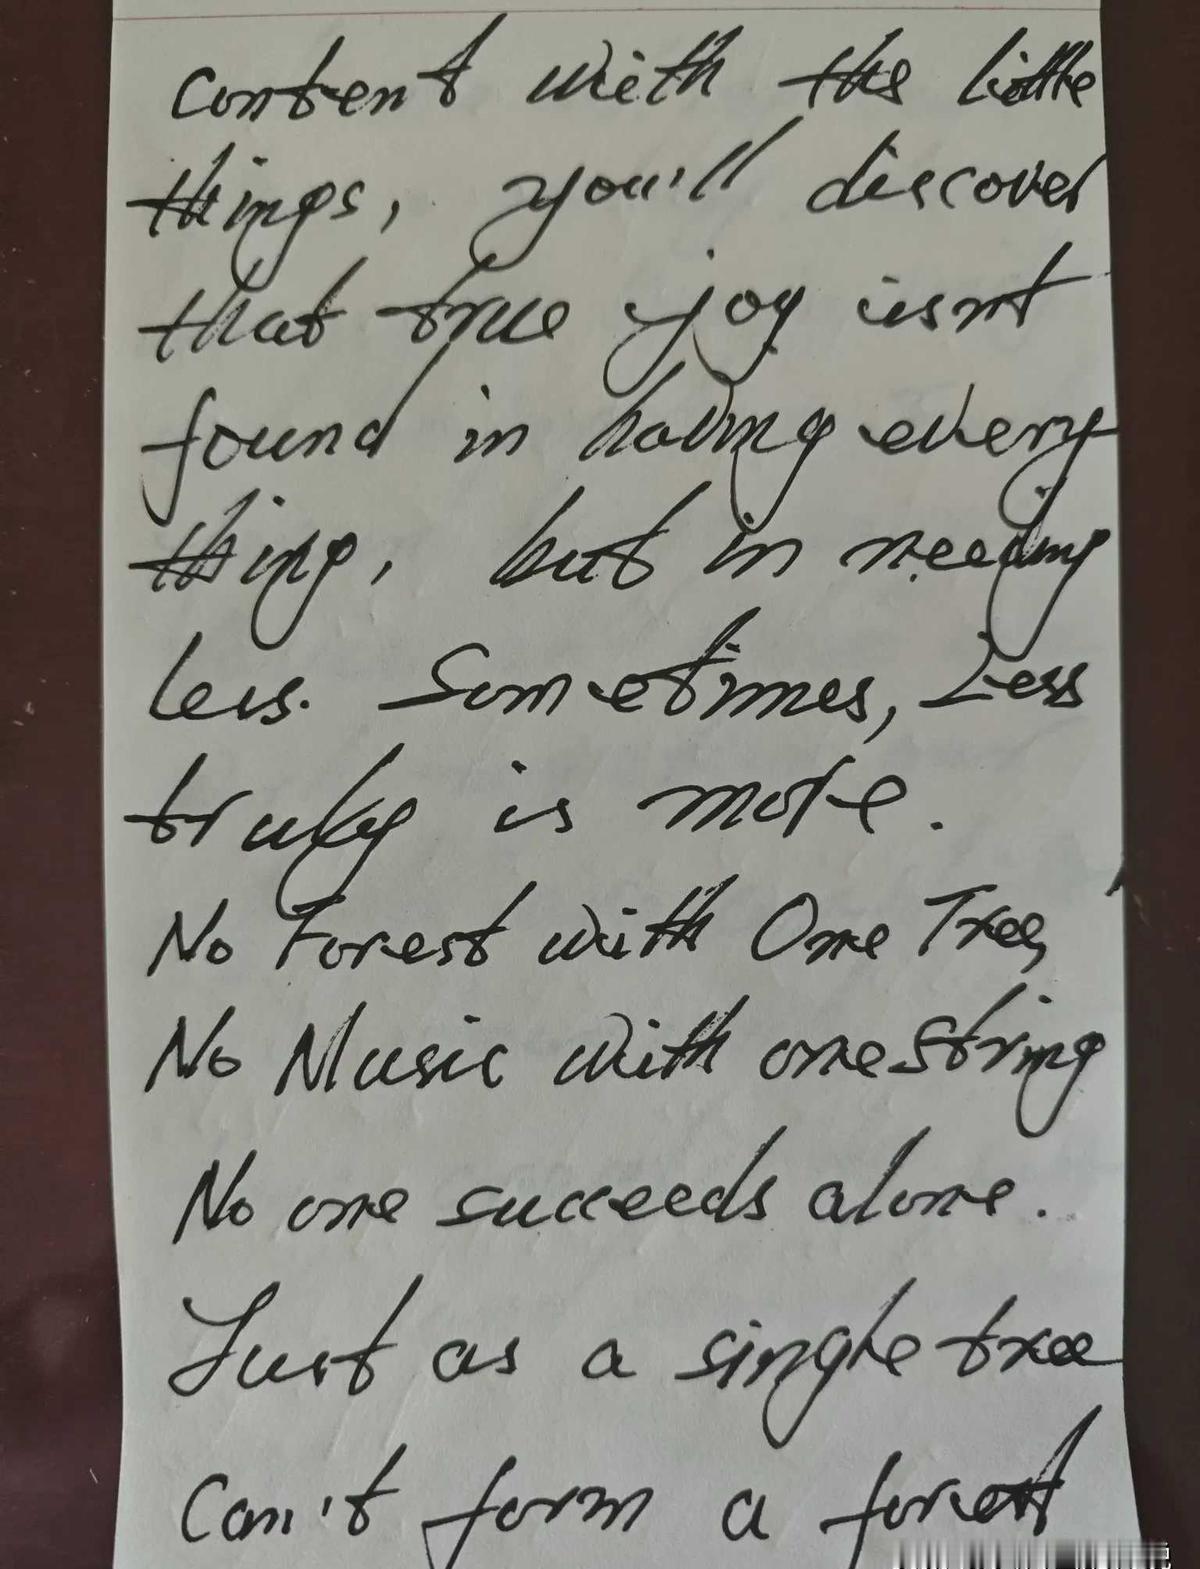 content with the little
things, you'll discover
that true joy isn't
found in having every
thing, but in needing
less. Sometimes, Less
truly is more.
No Forest with One Tree,
No Music with one String
No one succeeds alone.
Just as a single tree
Can't form a forest